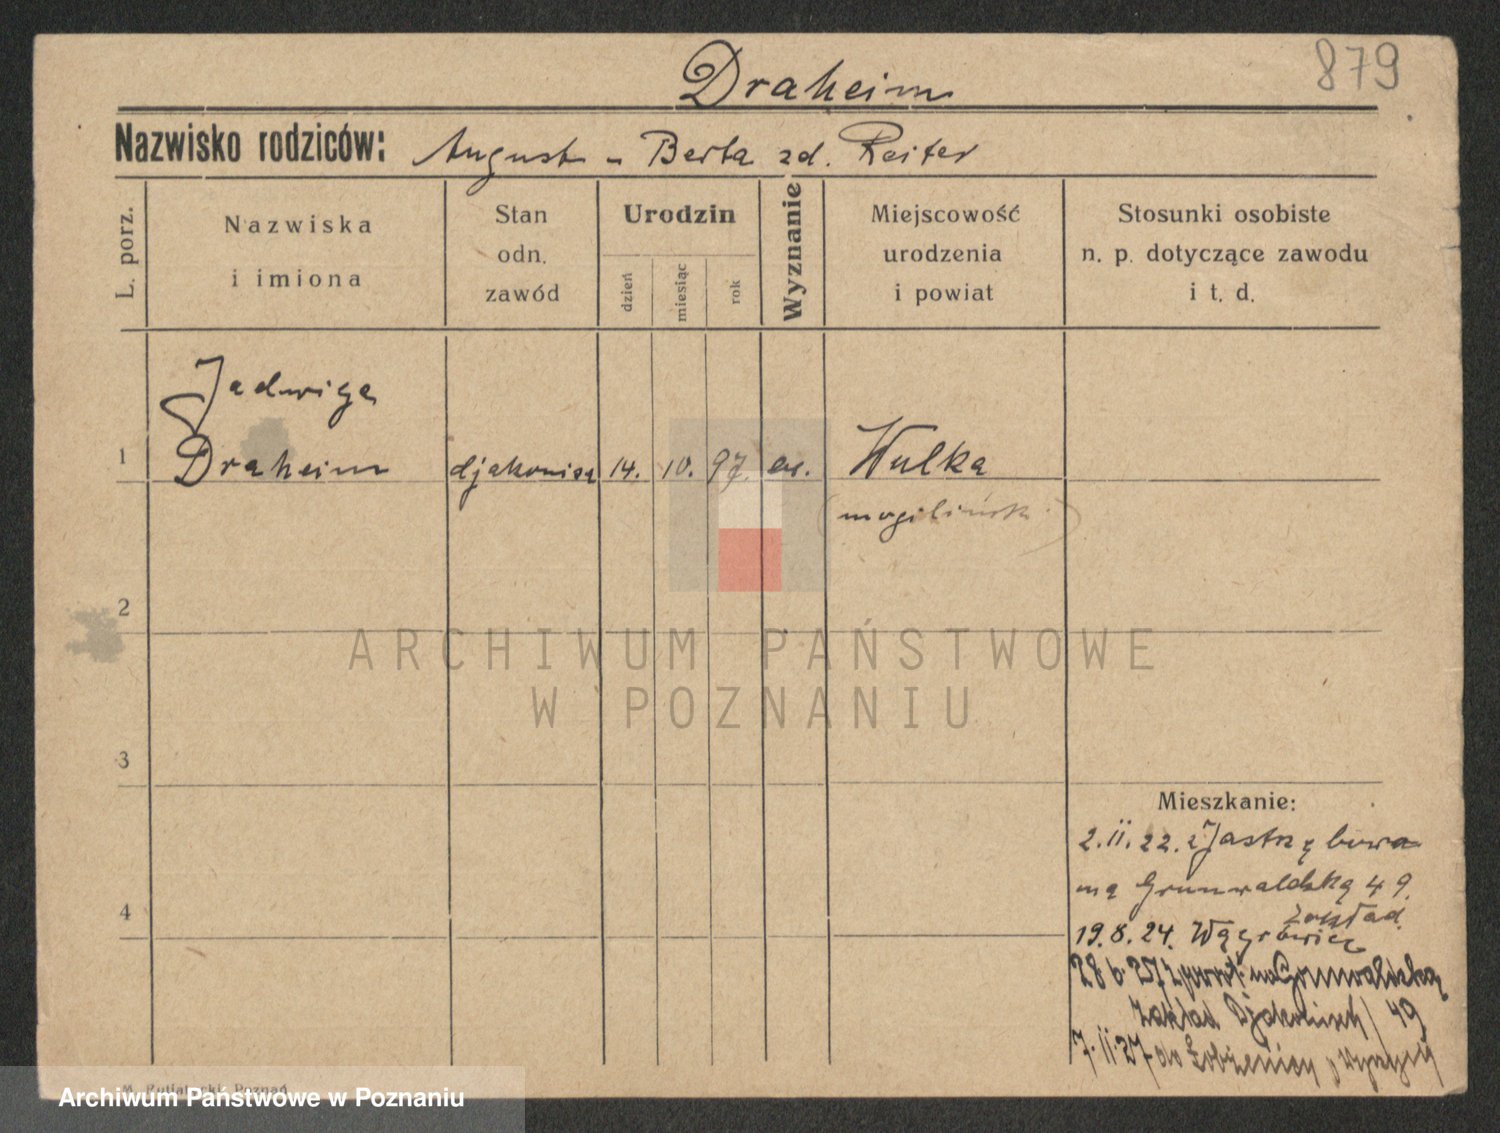 879
Draheim
Nazwisko rodziców: August - Berta zd. Reiter
L. porz.
Nazwiska
i imiona
Stan
odn.
zawód
Urodzin
dzień
miesiąc
rok
Wyznanie
Miejscowość
urodzenia
i powiat
Stosunki osobiste
n. p. dotyczące zawodu
i t. d.
Jadwiga
1 Draheim djakonisa 14. 10. 97. ew. Wulka
(mogilińsk.)
2
ARCHIWUM PAŃSTWOWE
W POZNANIU
3
4
Mieszkanie:
2.II.22. z Jastrzębowa
na Grunwaldzką 49.
zakład
19.8.24. Wągrówiec
28 6.27 z powrt. na Grunwaldzką
zakład Djakonisek / 49
7.II.37 do Łobżenicy, Wyrzysk
Poznań
Archiwum Państwowe w Poznaniu